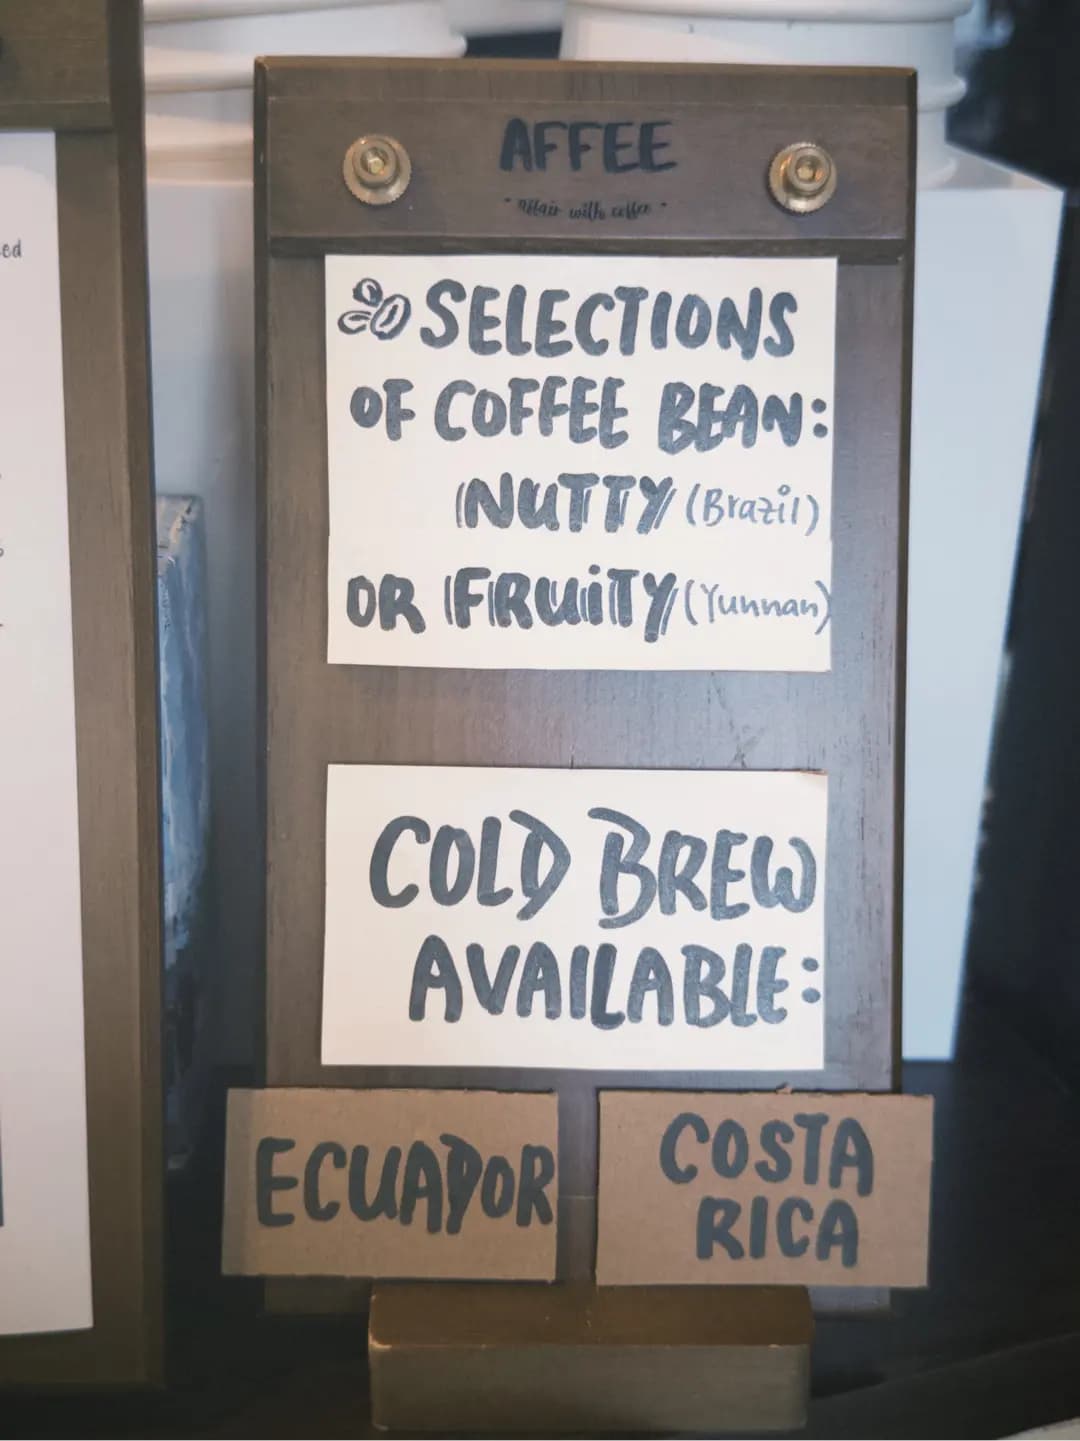 AFFEE
"Affair with coffee"
SELECTIONS
OF COFFEE BEAN:
NUTTY (Brazil)
OR FRUiTY (Yunnan)
COLD BREW
AVAILABLE:
ECUADOR
COSTA
RICA